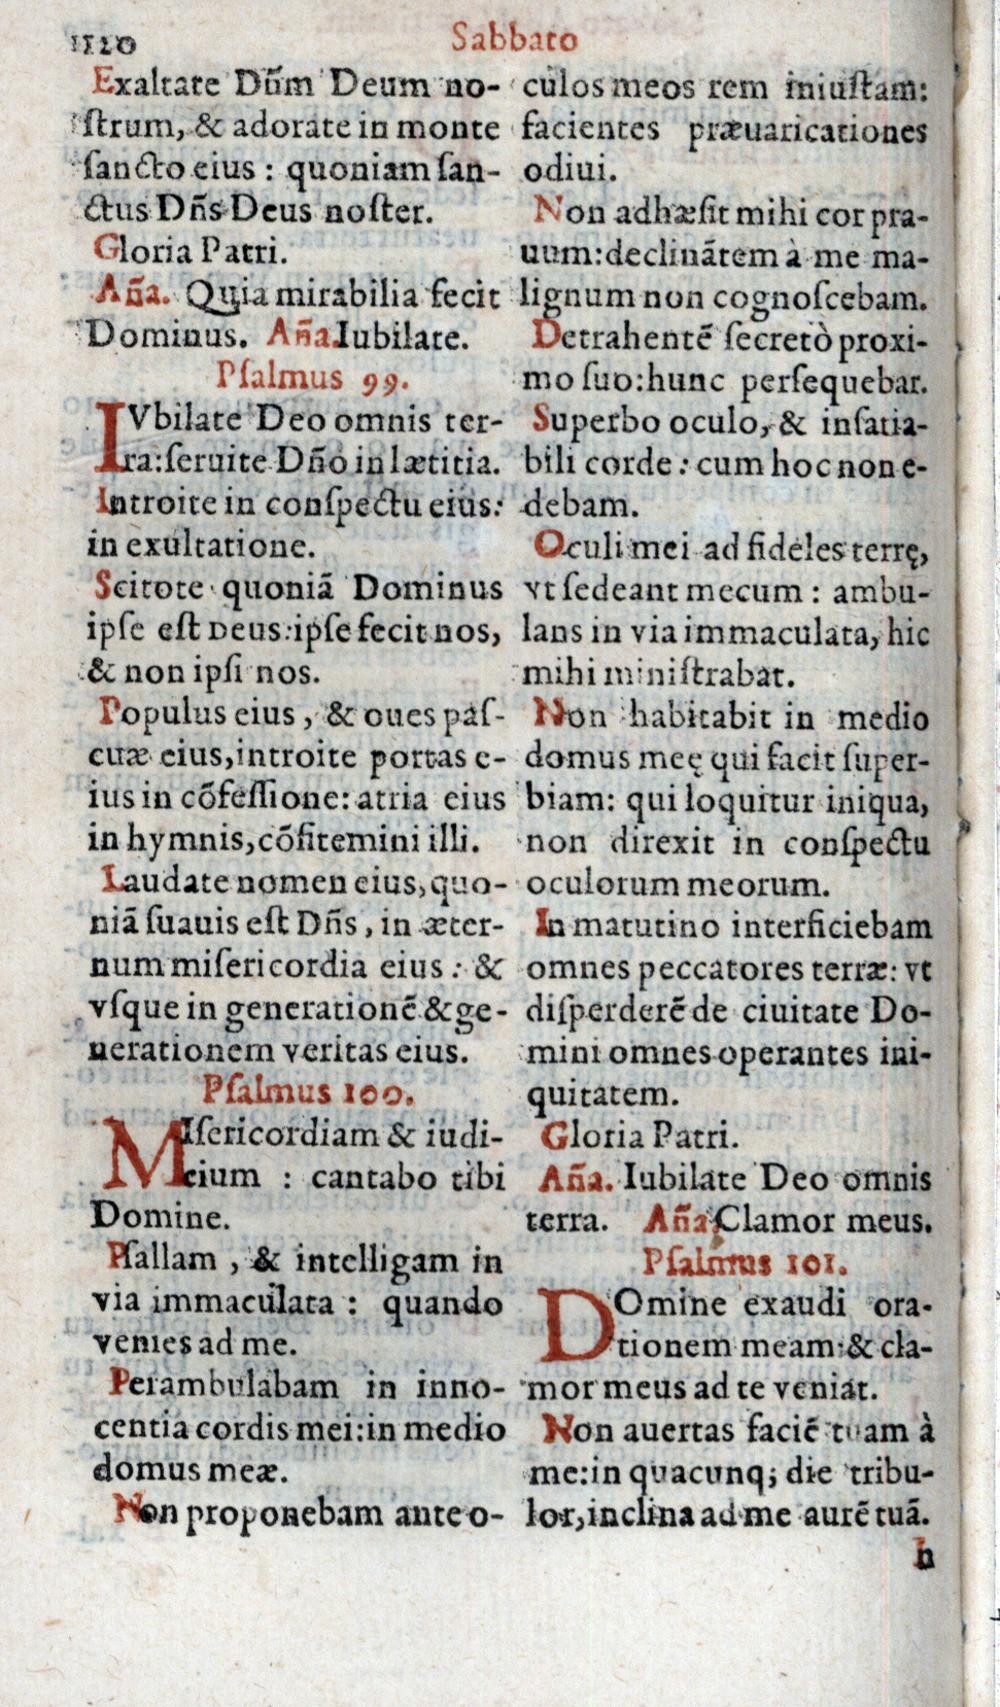 1120
Sabbato
Exaltate Dūm Deum no-
ſtrum, & adorate in monte
ſancto eius : quoniam ſan-
ctus Dñs Deus noſter.
Gloria Patri.
Aña. Quia mirabilia fecit
Dominus. Aña. Iubilate.
Pſalmus 99.
IVbilate Deo omnis ter-
ra: ſeruite Dño in lætitia.
Introite in conſpectu eius:
in exultatione.
Scitote quoniã Dominus
ipſe eſt Deus: ipſe fecit nos,
& non ipſi nos.
Populus eius, & oues paſ-
cuæ eius, introite portas e-
ius in cõfeſſione: atria eius
in hymnis, cõfitemini illi.
Laudate nomen eius, quo-
niã ſuauis eſt Dñs, in æter-
num miſericordia eius : &
vſque in generationẽ & ge-
nerationem veritas eius.
Pſalmus 100.
MIſericordiam & iudi-
cium : cantabo tibi
Domine.
Pſallam, & intelligam in
via immaculata : quando
venies ad me.
Perambulabam in inno-
centia cordis mei: in medio
domus meæ.
Non proponebam ante o-
culos meos rem iniuſtam:
facientes præuaricationes
odiui.
Non adhæſit mihi cor pra-
uum: declinãtem à me ma-
lignum non cognoſcebam.
Detrahentẽ ſecretò proxi-
mo ſuo: hunc perſequebar.
Superbo oculo, & inſatia-
bili corde : cum hoc non e-
debam.
Oculi mei ad fideles terrę,
vt ſedeant mecum : ambu-
lans in via immaculata, hic
mihi miniſtrabat.
Non habitabit in medio
domus meę qui facit ſuper-
biam: qui loquitur iniqua,
non direxit in conſpectu
oculorum meorum.
In matutino interficiebam
omnes peccatores terræ: vt
diſperderẽ de ciuitate Do-
mini omnes operantes ini-
quitatem.
Gloria Patri.
Aña. Iubilate Deo omnis
terra. Aña. Clamor meus.
Pſalmus 101.
DOmine exaudi ora-
tionem meam: & cla-
mor meus ad te veniat.
Non auertas faciẽ tuam à
me: in quacunq; die tribu-
lor, inclina ad me aurẽ tuã.
h